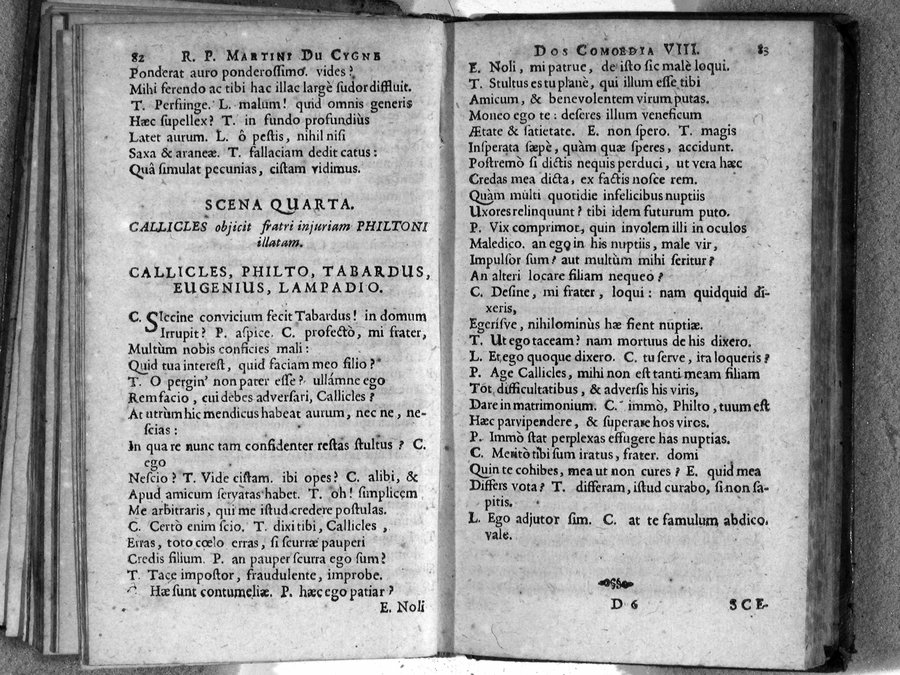 82 R. P. MARTINI DU CYGNE
Ponderat auro ponderosſimo. vides?
Mihi ferendo ac tibi hac illac largè ſudor diffluit.
T. Perfringe. L. malum! quid omnis generis
Hæc ſupellex? T. in fundo profundiùs
Latet aurum. L. ô peſtis, nihil niſi
Saxa & araneæ. T. fallaciam dedit catus:
Quâ ſimulat pecunias, ciſtam vidimus.
SCENA QUARTA.
CALLICLES objicit fratri injuriam PHILTONI
illatam.
CALLICLES, PHILTO, TABARDUS,
EUGENIUS, LAMPADIO.
C. SIccine convicium fecit Tabardus! in domum
Irrupit? P. aſpice. C. profectò, mi frater,
Multùm nobis conficies mali:
Quid tua intereſt, quid faciam meo filio?
T. O pergin' non pater eſſe? ullámne ego
Rem facio, cui debes adverſari, Callicles?
At utrùm hic mendicus habeat aurum, nec ne, ne-
ſcias:
In qua re nunc tam confidenter reſtas ſtultus? C.
ego
Neſcio? T. Vide ciſtam. ibi opes? C. alibi, &
Apud amicum ſervatas habet. T. oh! ſimplicem
Me arbitraris, qui me iſtud credere poſtulas.
C. Certò enim ſcio. T. dixi tibi, Callicles,
Erras, toto cœlo erras, ſi ſcurræ pauperi
Credis filium. P. an pauper ſcurra ego ſum?
T. Tace impoſtor, fraudulente, improbe.
C. Hæ ſunt contumeliæ. P. hæc ego patiar?
E. Noli
DOS COMOEDIA VIII. 83
E. Noli, mi patrue, de iſto ſic malè loqui.
T. Stultus es tu planè, qui illum eſſe tibi
Amicum, & benevolentem virum putas.
Moneo ego te: deſeres illum veneficum
Ætate & ſatietate. E. non ſpero. T. magis
Inſperata ſæpè, quàm quæ ſperes, accidunt.
Poſtremò ſi dictis nequis perduci, ut vera hæc
Credas mea dicta, ex factis noſce rem.
Quàm multi quotidie infelicibus nuptiis
Uxores relinquunt? tibi idem futurum puto.
P. Vix comprimor, quin involem illi in oculos
Maledico. an ego in his nuptiis, male vir,
Impulſor ſum? aut multùm mihi feritur?
An alteri locare filiam nequeo?
C. Deſine, mi frater, loqui: nam quidquid di-
xeris,
Egeriſve, nihilominùs hæ fient nuptiæ.
T. Ut ego taceam? nam mortuus de his dixero.
L. Et ego quoque dixero. C. tu ſerve, ita loqueris?
P. Age Callicles, mihi non eſt tanti meam filiam
Tot difficultatibus, & adverſis his viris,
Dare in matrimonium. C. immò, Philto, tuum eſt
Hæc parvipendere, & ſuperare hos viros.
P. Immò ſtat perplexas effugere has nuptias.
C. Meritò tibi ſum iratus, frater. domi
Quin te cohibes, mea ut non cures? E. quid mea
Differs vota? T. differam, iſtud curabo, ſi non ſa-
pitis.
L. Ego adjutor ſim. C. at te famulum abdico.
vale.
D 6 SCE-